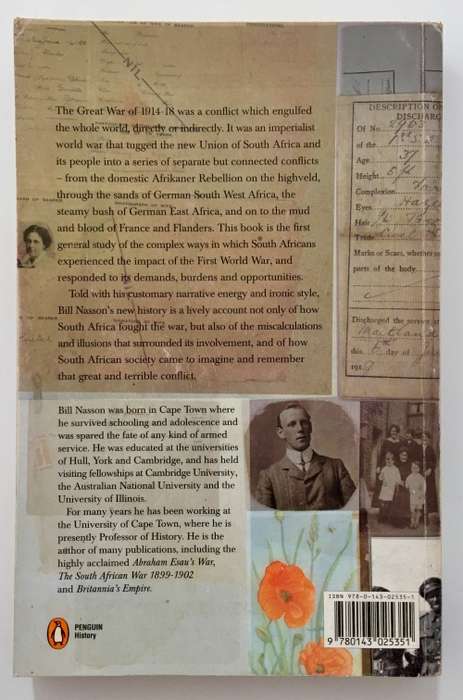 NIL
DESCRIPTION O
DISCHARG
Of No.
of the
Age
Height
Complexion
Eyes
Hair
Trade
Marks or Scars, whether
parts of the body
Discharged the service at
Maitland
this day of
191
The Great War of 1914-18 was a conflict which engulfed
the whole world, directly or indirectly. It was an imperialist
world war that tugged the new Union of South Africa and
its people into a series of separate but connected conflicts
– from the domestic Afrikaner Rebellion on the highveld,
through the sands of German South West Africa, the
steamy bush of German East Africa, and on to the mud
and blood of France and Flanders. This book is the first
general study of the complex ways in which South Africans
experienced the impact of the First World War, and
responded to its demands, burdens and opportunities.
Told with his customary narrative energy and ironic style,
Bill Nasson's new history is a lively account not only of how
South Africa fought the war, but also of the miscalculations
and illusions that surrounded its involvement, and of how
South African society came to imagine and remember
that great and terrible conflict.
Bill Nasson was born in Cape Town where
he survived schooling and adolescence and
was spared the fate of any kind of armed
service. He was educated at the universities
of Hull, York and Cambridge, and has held
visiting fellowships at Cambridge University,
the Australian National University and the
University of Illinois.
For many years he has been working at
the University of Cape Town, where he is
presently Professor of History. He is the
author of many publications, including the
highly acclaimed Abraham Esau's War,
The South African War 1899-1902
and Britannia's Empire.
PENGUIN
History
ISBN 978-0-143-02535-1
9 780143 025351